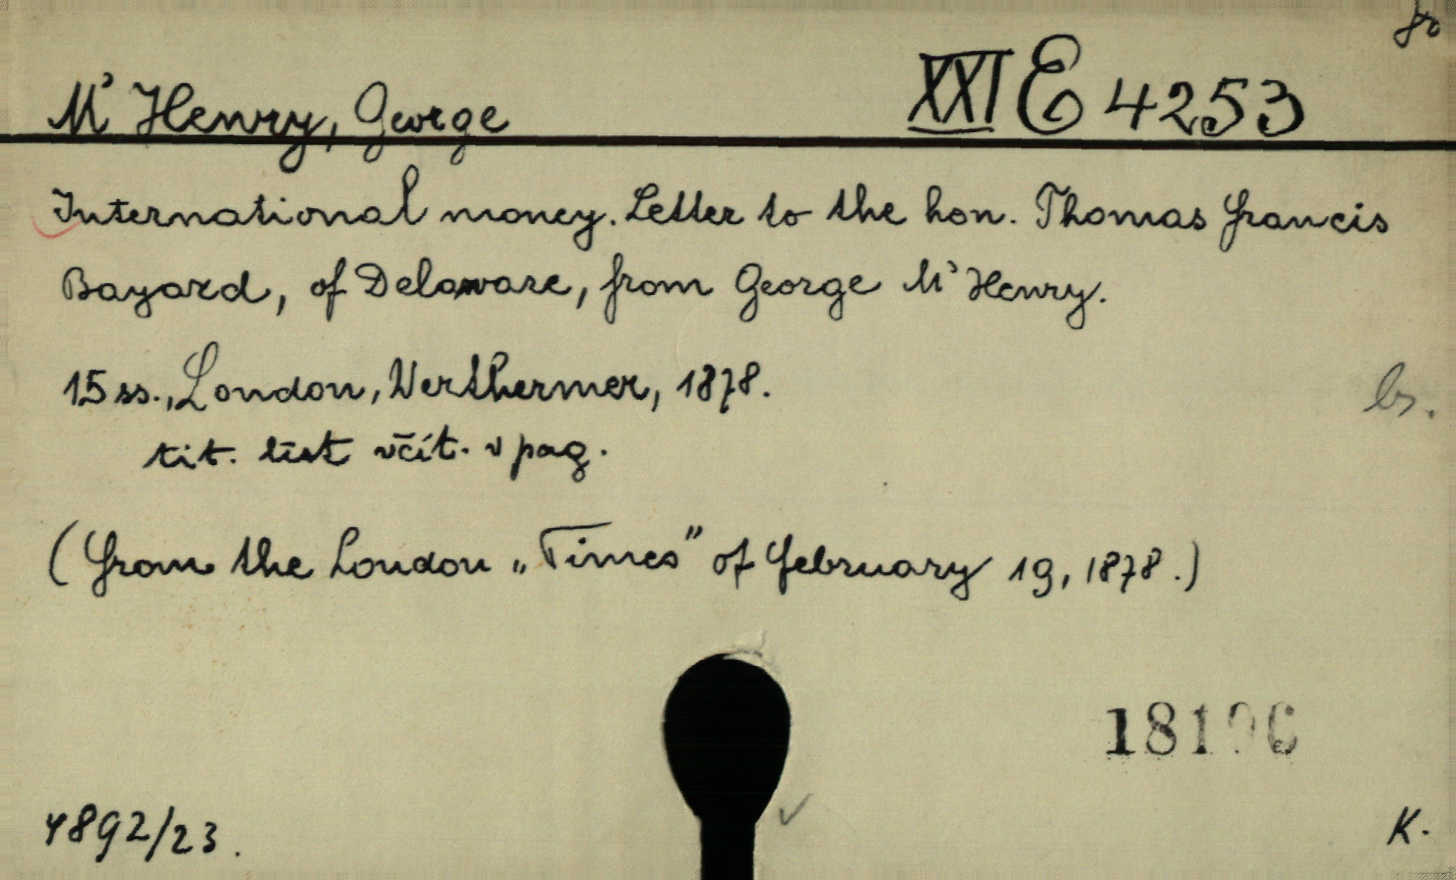 M' Henry, George XXI E 4253
International money. Letter to the hon. Thomas Francis
Bayard, of Delaware, from George M' Henry.
15 ss., London, Werthermer, 1878.
tit. list včít. v pag.
(From the London „Times" of February 19, 1878.)
4892/23.
K.